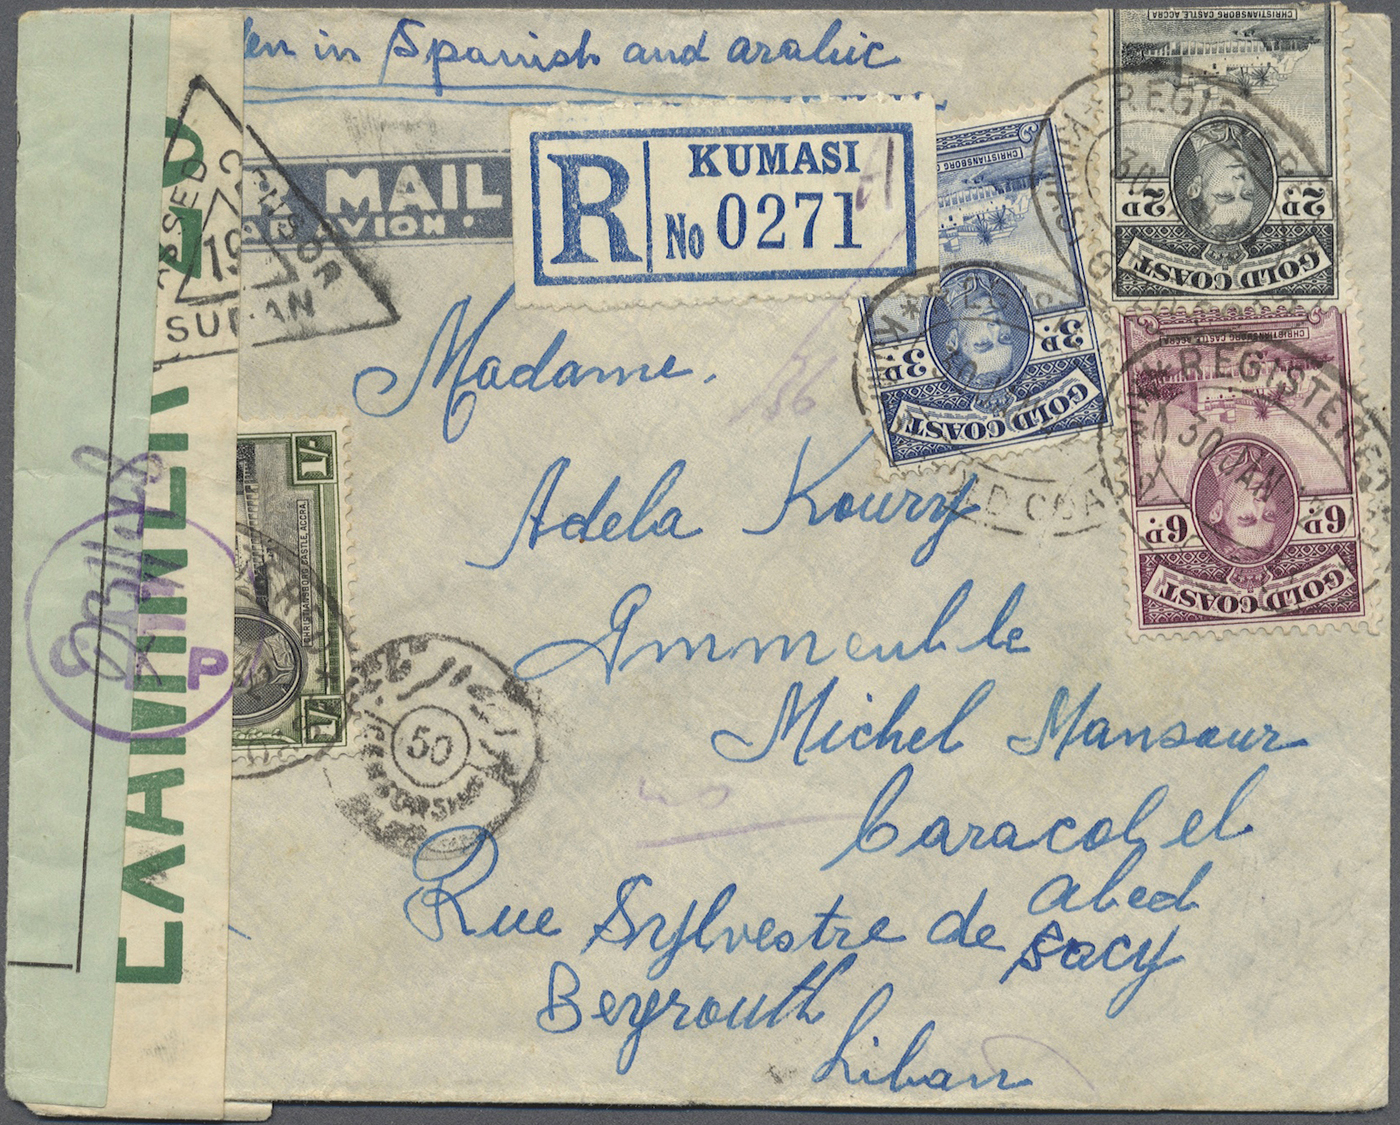 en in Spanish and arabic
R
KUMASI
No 0271
MAIL
AVION
SSED
19
SUDAN
EXAMINER
P
Madame,
Adela Koury
Immeuble
Michel Mansour
Caracol el
abed
Rue Sylvestre de Sacy
Beyrouth
Liban
CHRISTIANSBORG CASTLE ACCRA
2D 2D
GOLD COAST
CHRISTIANSBORG CASTLE ACCRA
3D 3D
GOLD COAST
CHRISTIANSBORG CASTLE ACCRA
6D 6D
GOLD COAST
1/-
CHRISTIANSBORG CASTLE, ACCRA.
1/-
REGISTERED
30 JAN
50